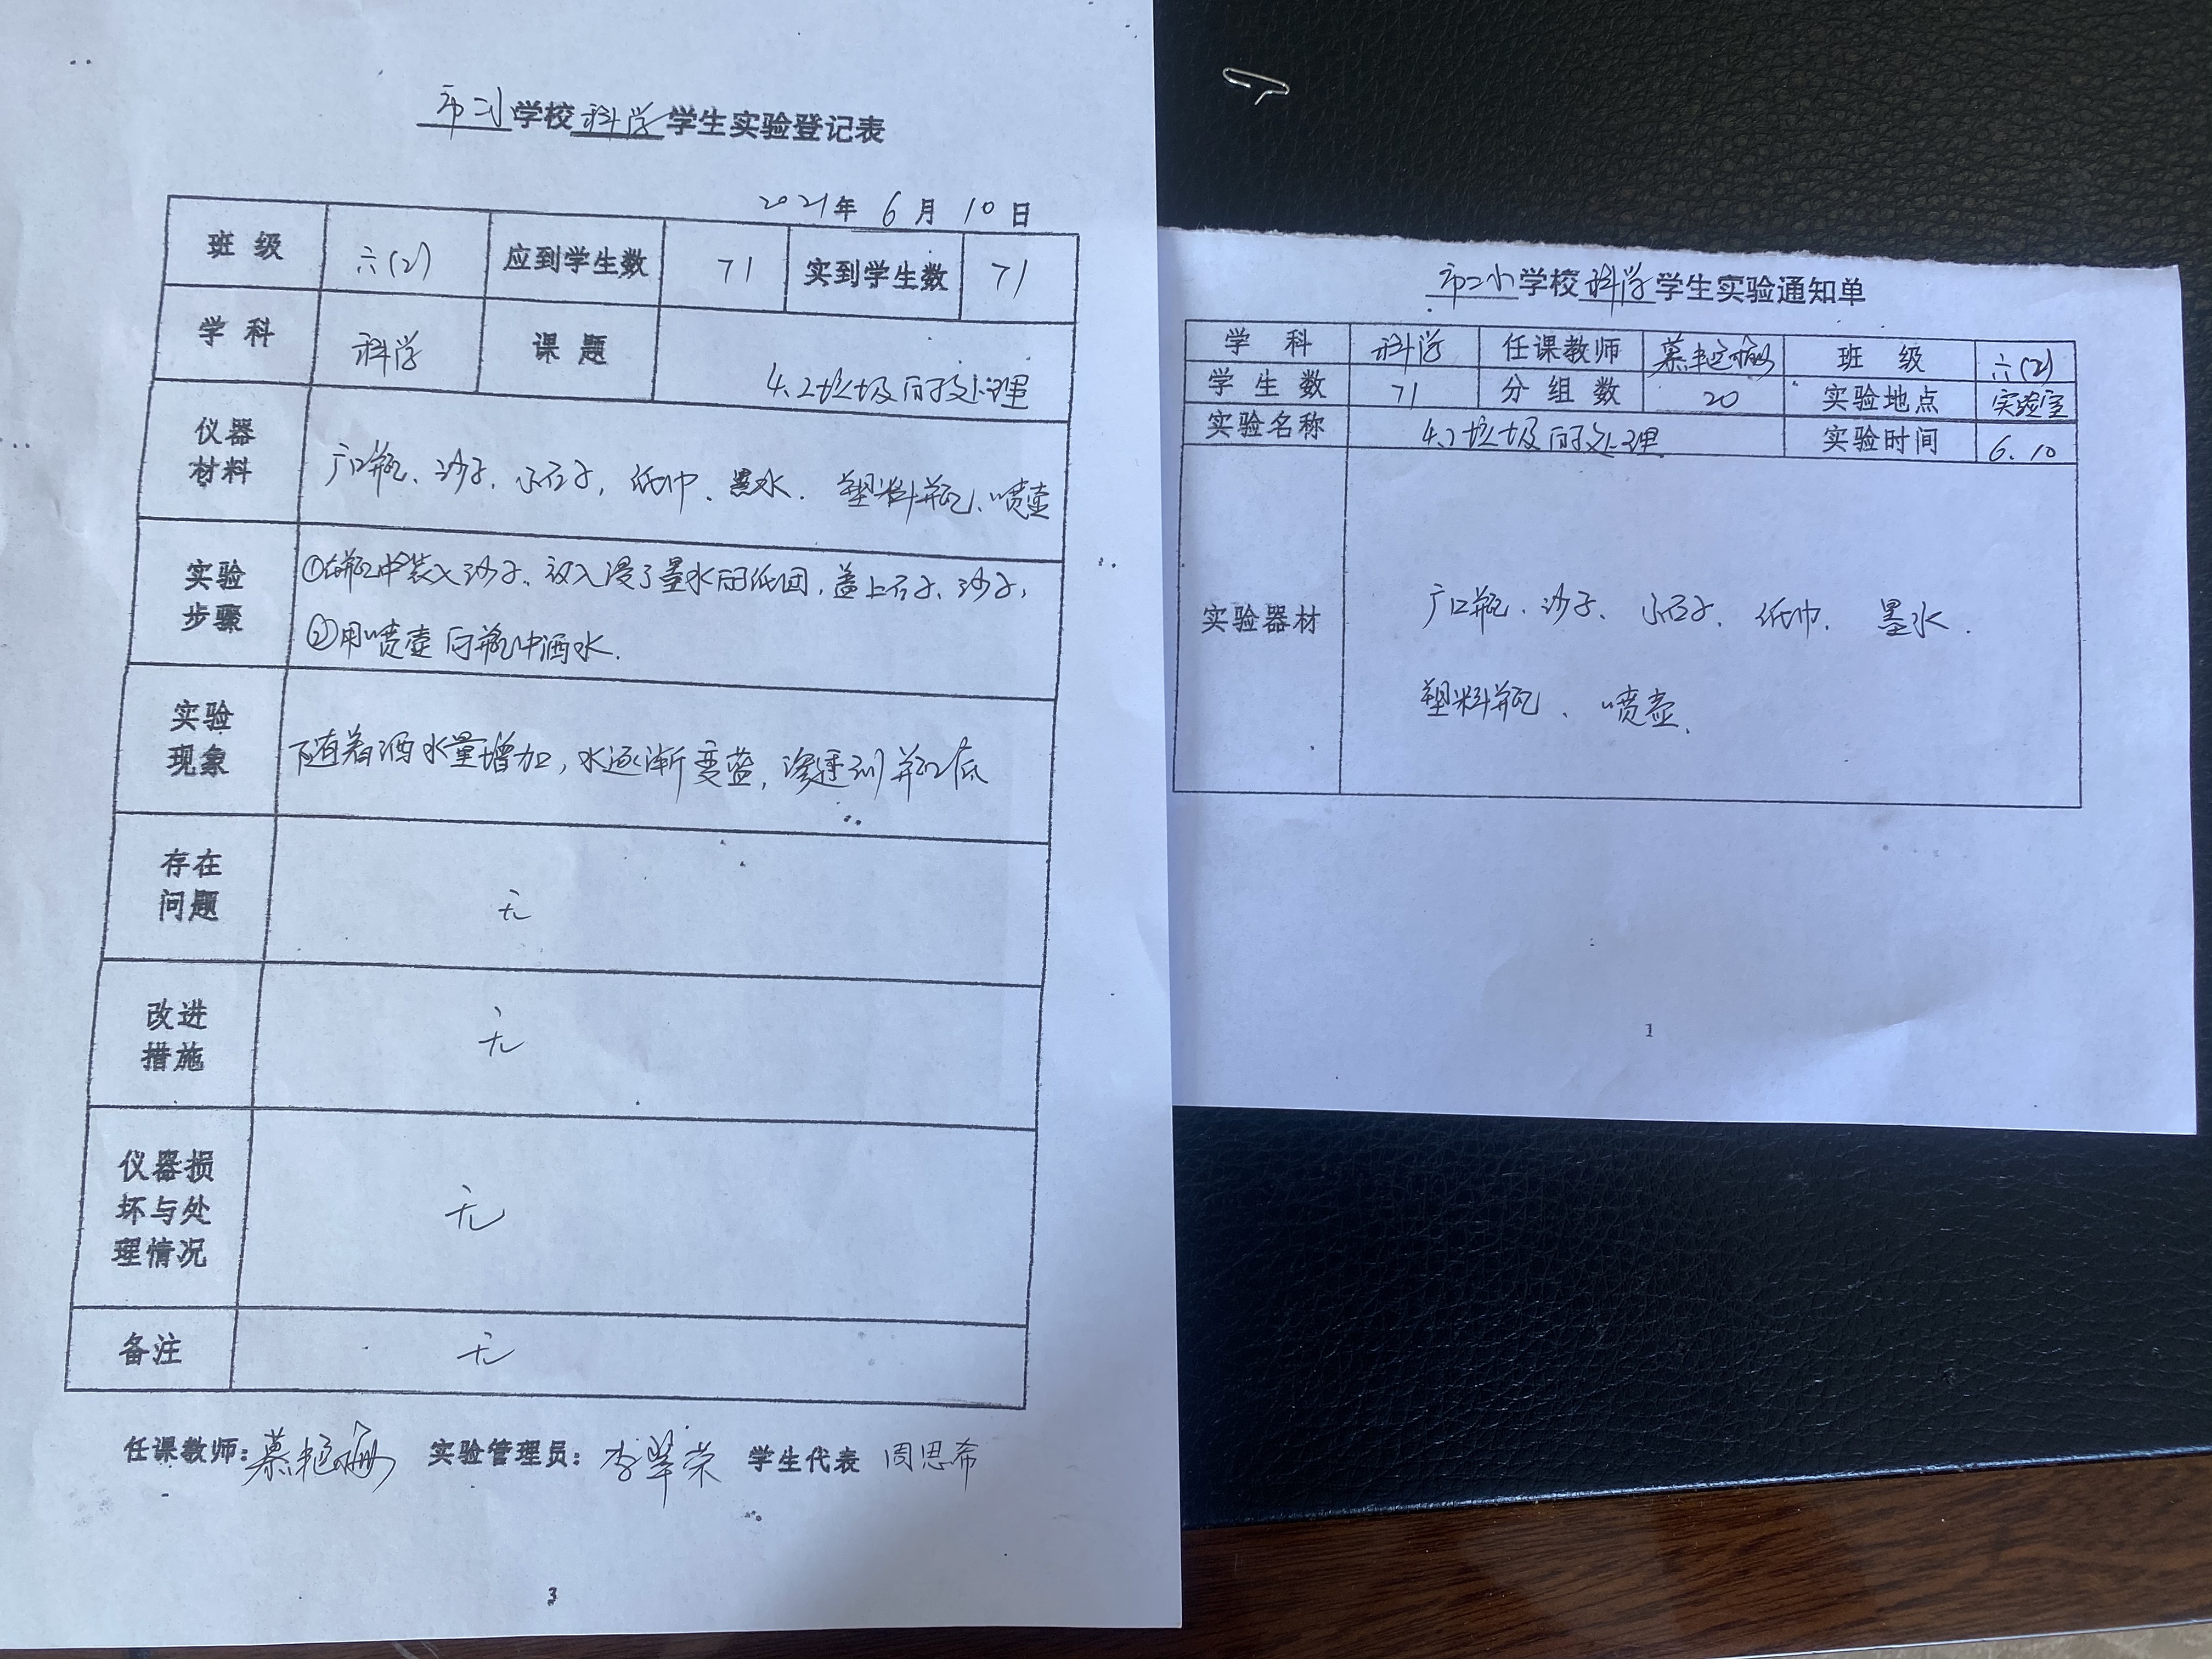 市二小学校科学学生实验登记表
2021年 6月 10日
班级 六(2) 应到学生数 71 实到学生数 71
学科 科学 课题 4.2垃圾的处理
仪器
材料
广口瓶、沙子、小石子,纸巾、墨水、塑料瓶、喷壶
实验
步骤
①在瓶中装入沙子、放入浸了墨水的纸团,盖上石子、沙子,
②用喷壶向瓶中洒水.
实验
现象
随着洒水量增加,水逐渐变蓝,渗透到瓶底
存在
问题
无
改进
措施
无
仪器损
坏与处
理情况
无
备注 无
任课教师:慕艳 实验管理员:李翠荣 学生代表 周思希
3
市二小学校科学学生实验通知单
学科 科学 任课教师 慕艳 班级 六(2)
学生数 71 分组数 20 实验地点 实验室
实验名称 4.2垃圾的处理 实验时间 6.10
实验器材
广口瓶、沙子、小石子、纸巾、墨水、
塑料瓶、喷壶、
1